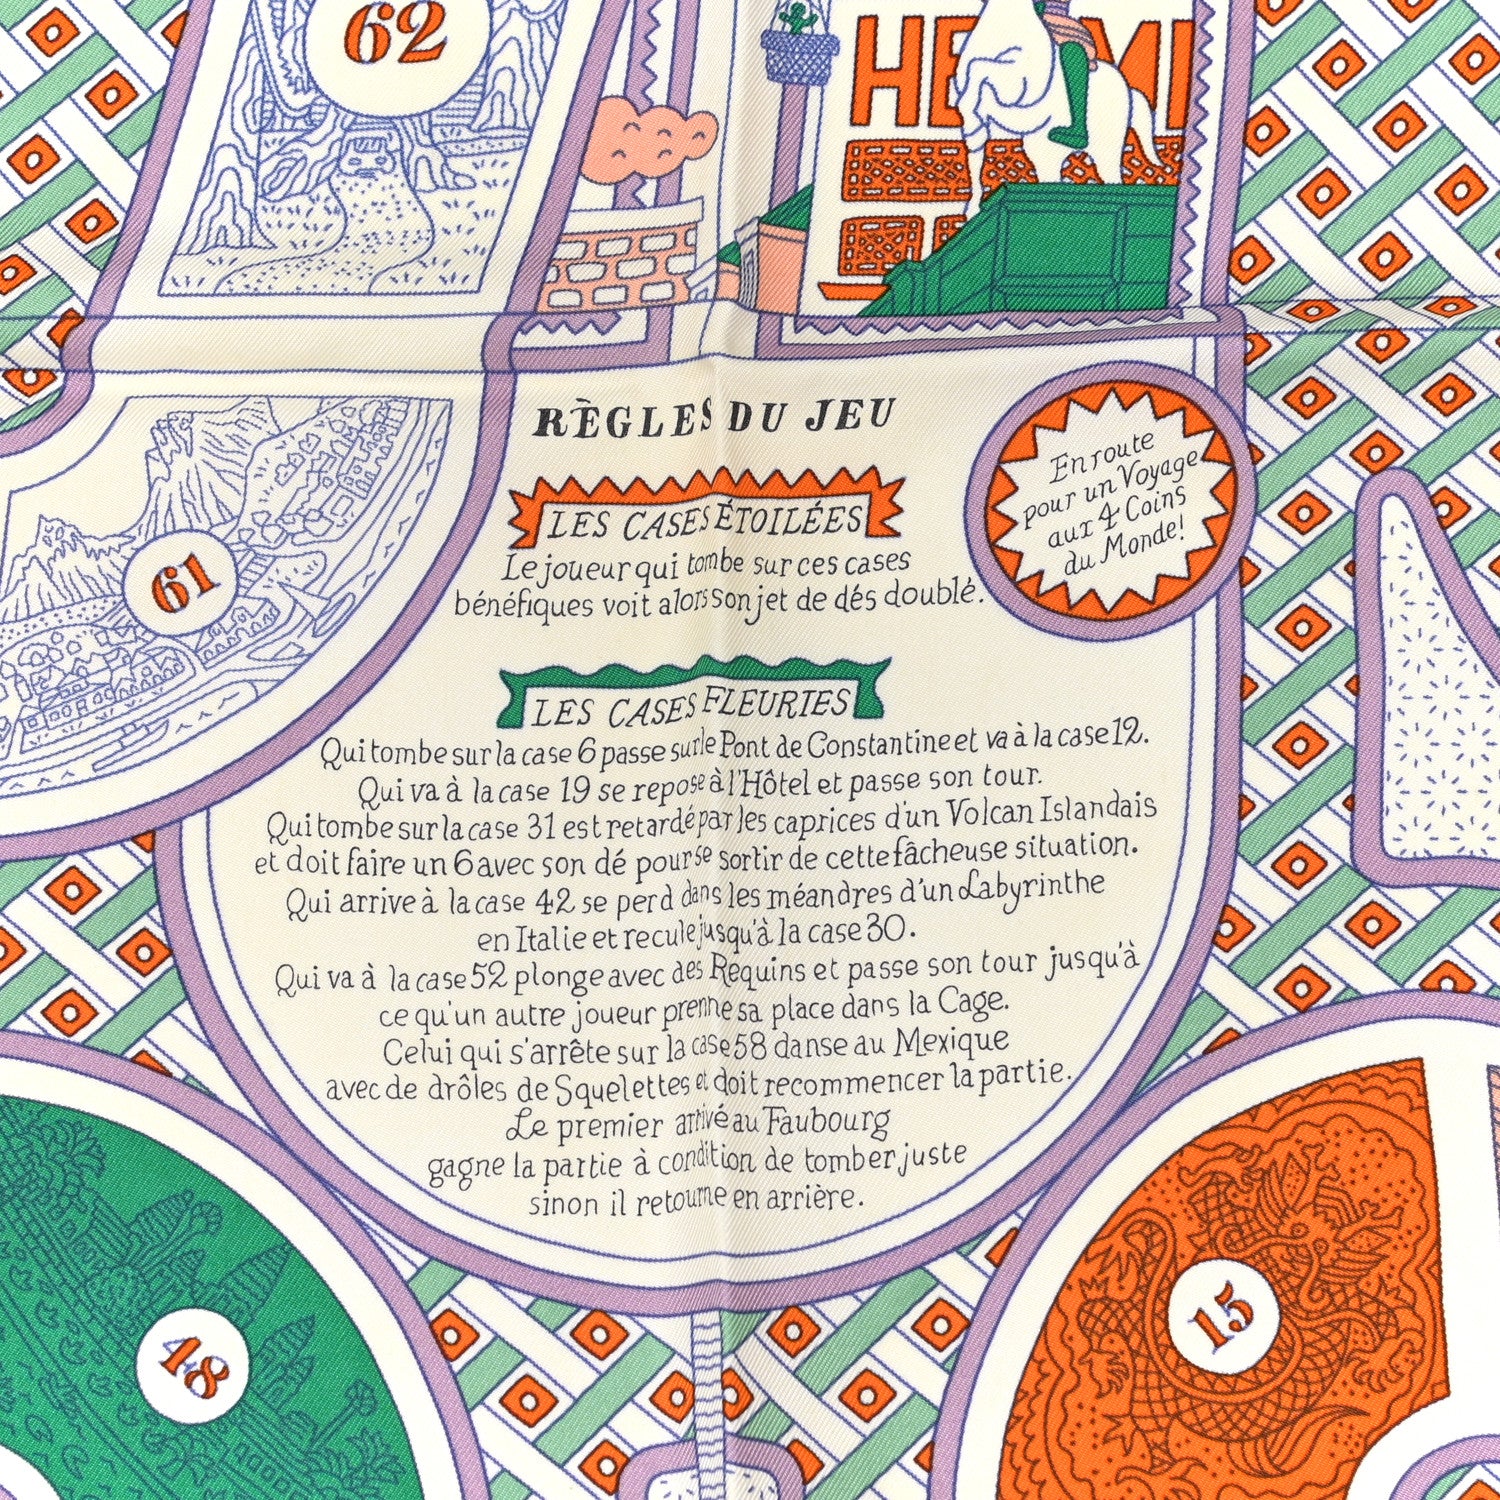 62
HE MI
RÈGLES DU JEU
En route
pour un Voyage
aux 4 Coins
du Monde!
LES CASES ÉTOILÉES
Le joueur qui tombe sur ces cases
bénéfiques voit alors son jet de dés doublé.
61
LES CASES FLEURIES
Qui tombe sur la case 6 passe sur le Pont de Constantine et va à la case 12.
Qui va à la case 19 se repose à l'Hôtel et passe son tour.
Qui tombe sur la case 31 est retardé par les caprices d'un Volcan Islandais
et doit faire un 6 avec son dé pour se sortir de cette fâcheuse situation.
Qui arrive à la case 42 se perd dans les méandres d'un Labyrinthe
en Italie et recule jusqu'à la case 30.
Qui va à la case 52 plonge avec des Requins et passe son tour jusqu'à
ce qu'un autre joueur prenne sa place dans la Cage.
Celui qui s'arrête sur la case 58 danse au Mexique
avec de drôles de Squelettes et doit recommencer la partie.
Le premier arrivé au Faubourg
gagne la partie à condition de tomber juste
sinon il retourne en arrière.
48
15